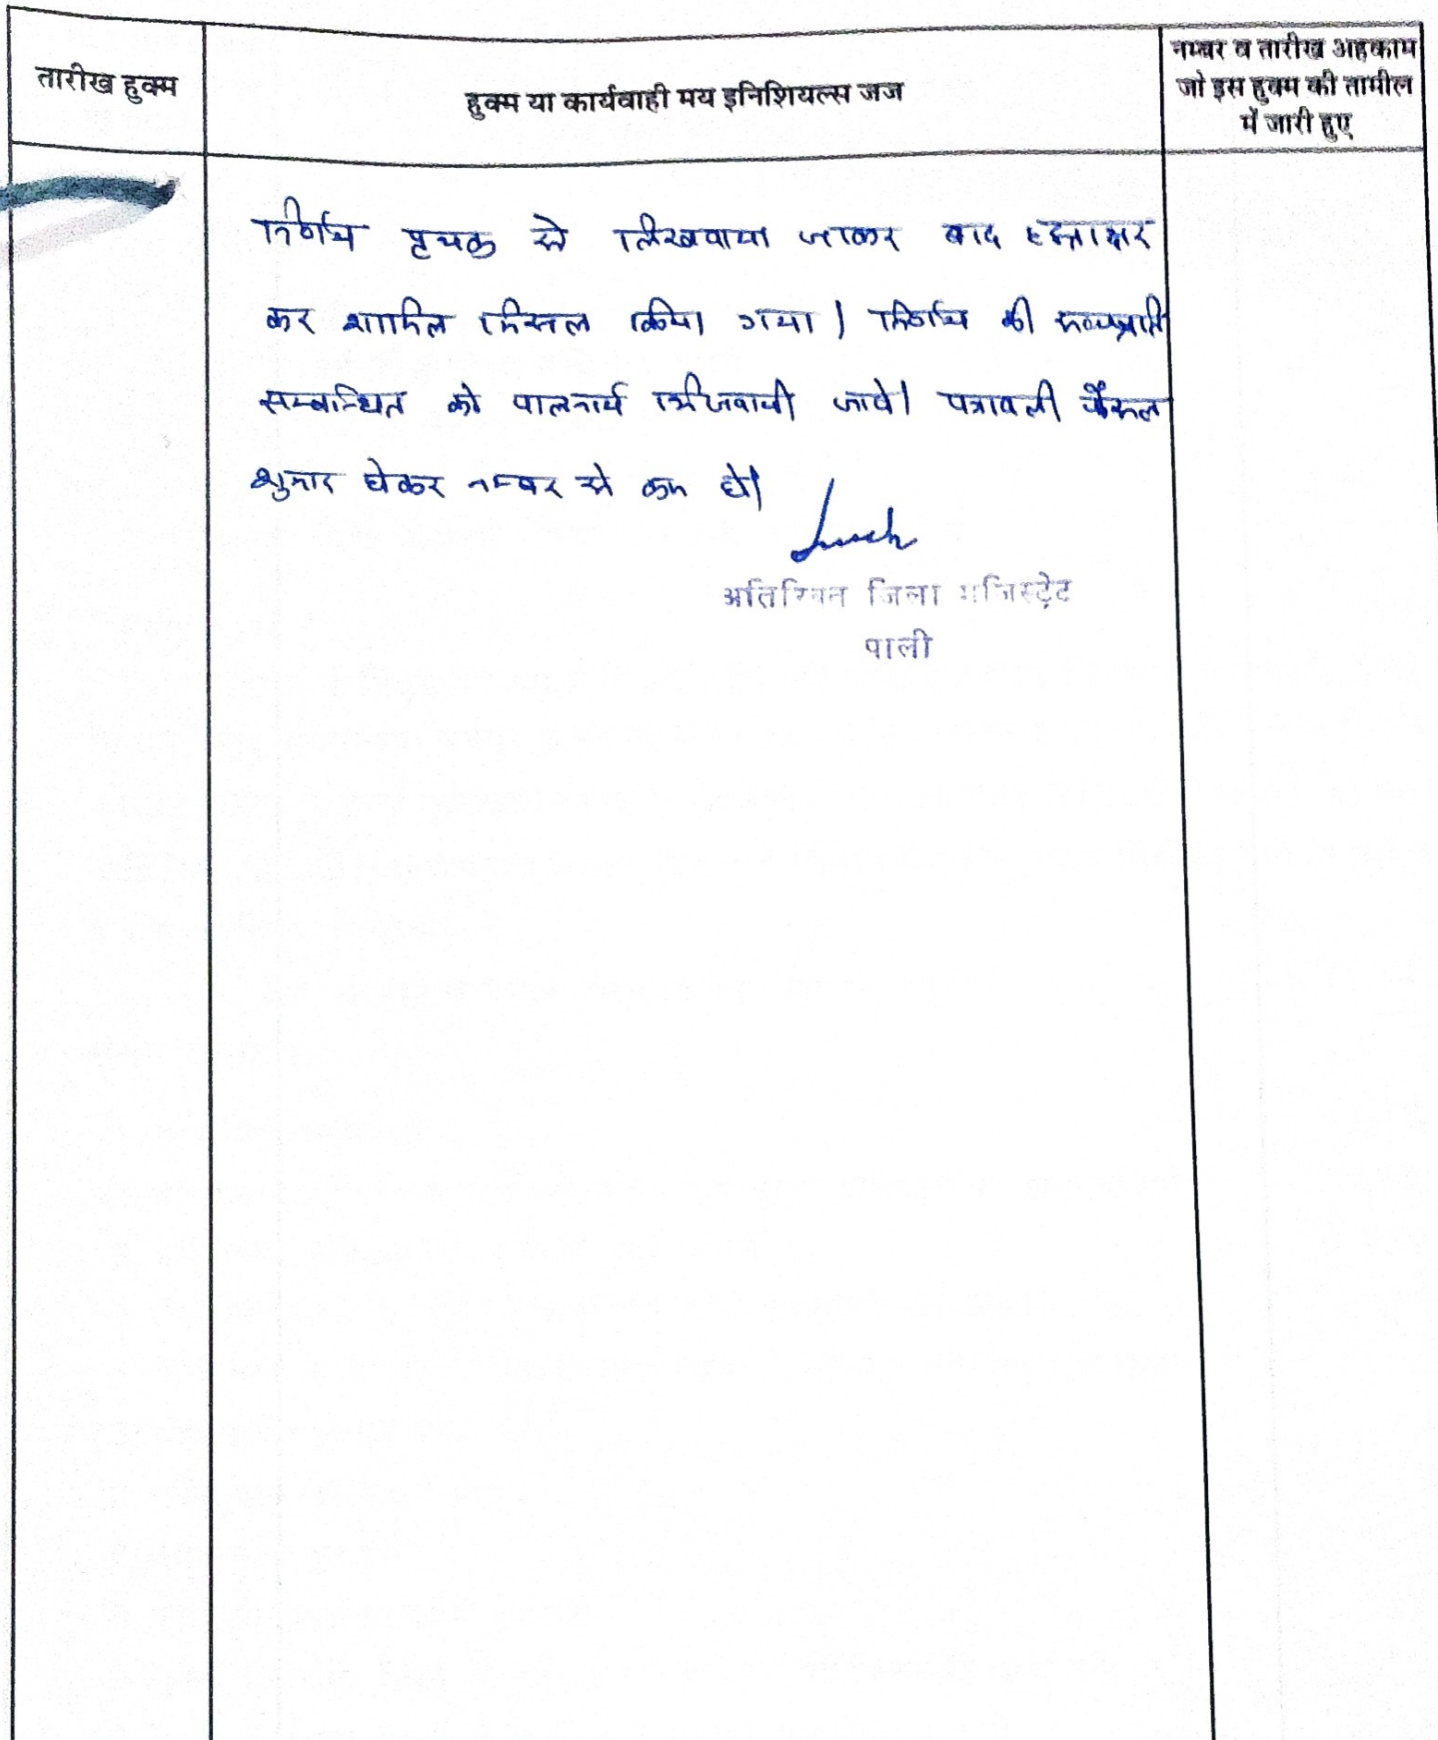 तारीख हुक्म
हुक्म या कार्यवाही मय इनिशियल्स जज
नम्बर व तारीख अहकाम
जो इस हुक्म की तामील
में जारी हुए
निर्णय पृथक से लिखवाया जाकर बाद हस्ताक्षर
कर शामिल मिसल किया गया। निर्णय की सत्यप्रति
सम्बन्धित को पालनार्थ भिजवायी जावे। पत्रावली फैसल
शुमार होकर नम्बर से कम हो।
अतिरिक्त जिला मजिस्ट्रेट
पाली